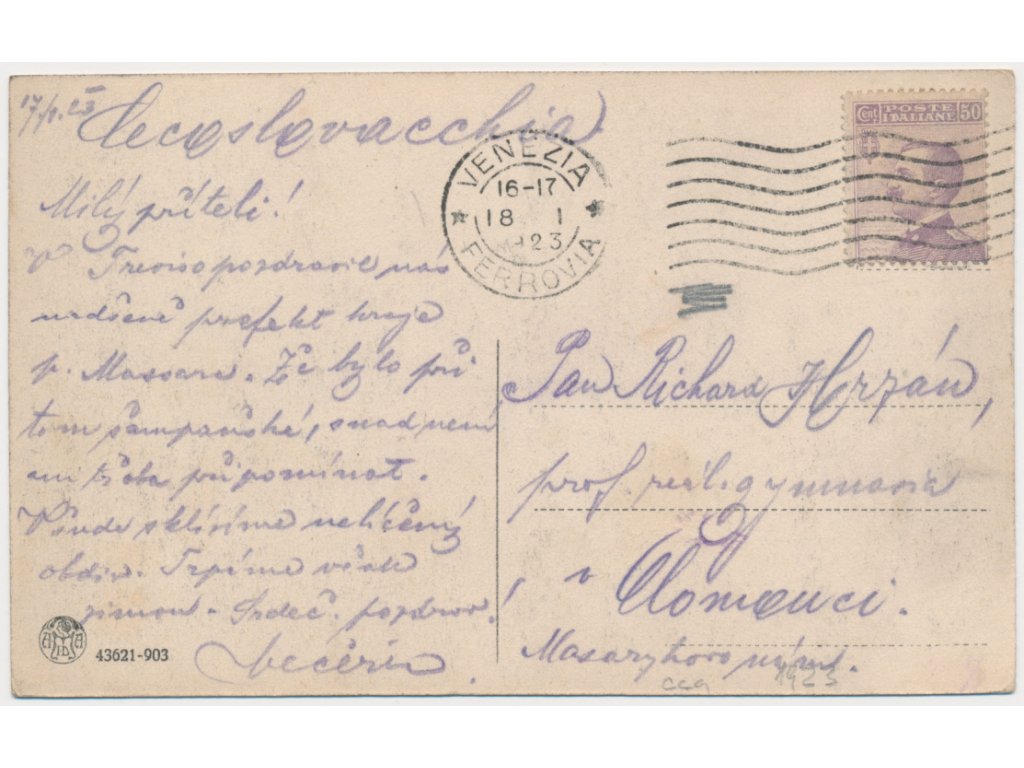 17/1. 23
Cecoslovacchia
Milý příteli!
V Treviso pozdravil nás
nadšeně prefekt kraje
p. Massara. Že bylo při
tom šampaňské, snad není
ani třeba připomínat.
Všude sklízíme nelíčený
obdiv. Trpíme však
zimou. Srdeč. pozdrav!
Večeřa
43621-903
VENEZIA
16-17
18 1
1923
FERROVIA
Cent. POSTE ITALIANE 50
Pan Richard Hrzán,
prof. reál. gymnasia
v Olomouci.
Masarykovo nám.
1923